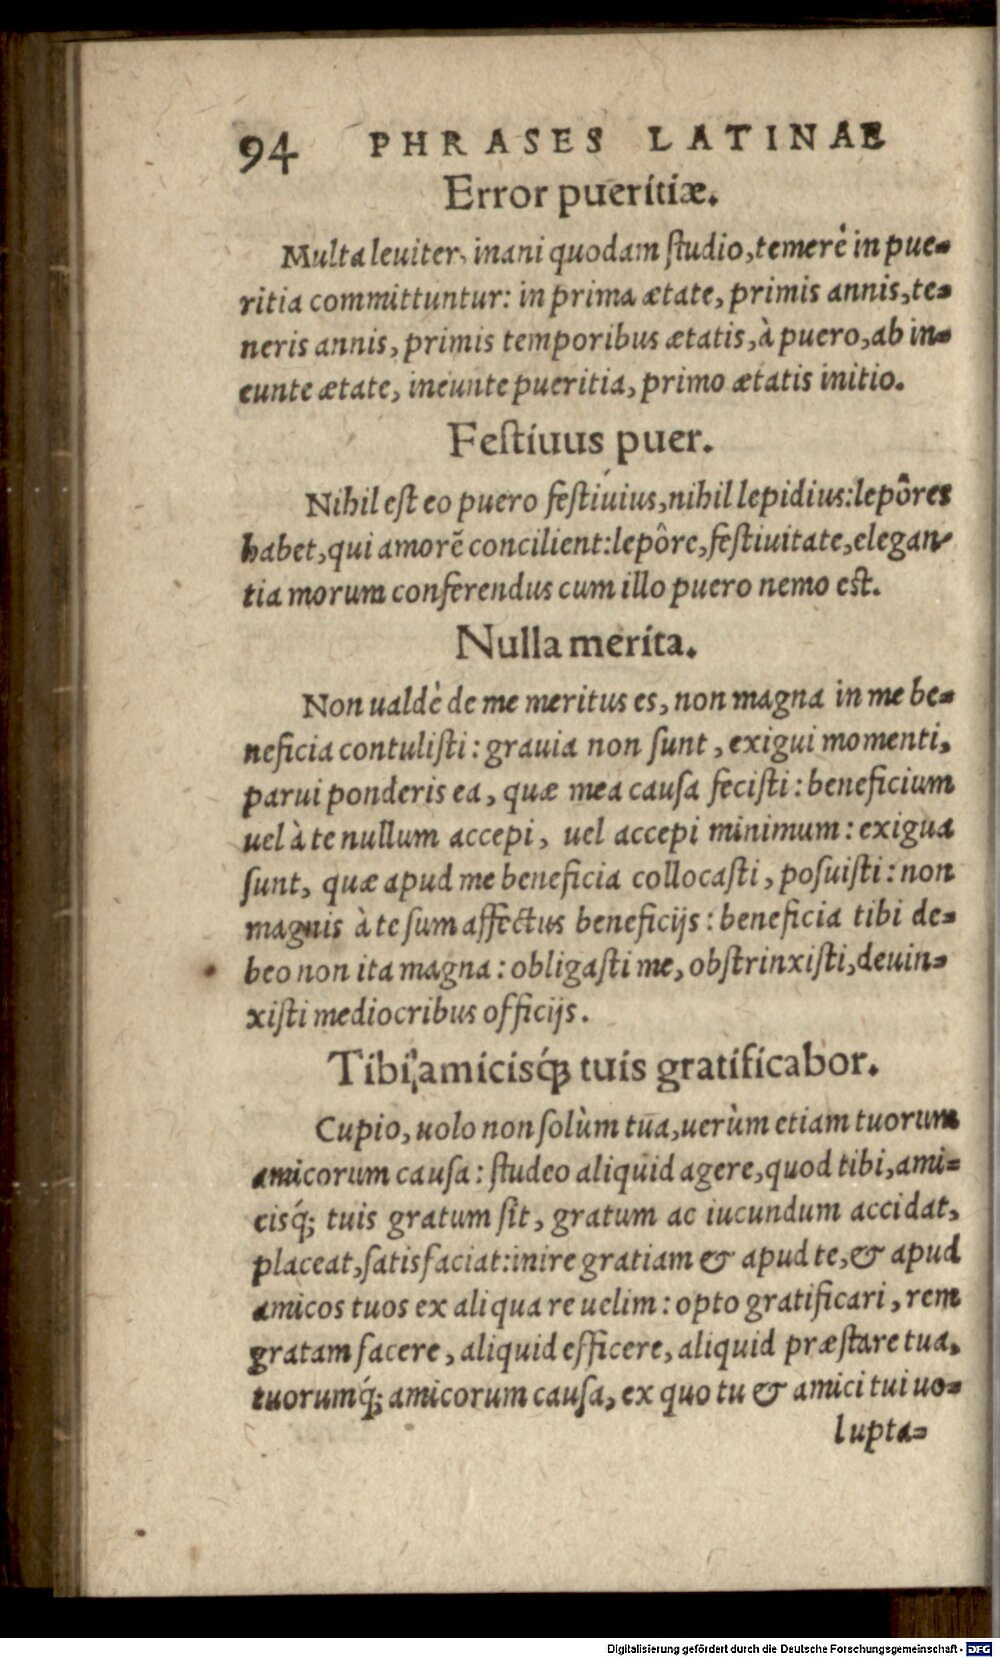 94 PHRASES LATINAE
Error pueritiæ.
Multa leuiter, inani quodam ſtudio, temerè in pue-
ritia committuntur: in prima ætate, primis annis, te-
neris annis, primis temporibus ætatis, à puero, ab in-
eunte ætate, ineunte pueritia, primo ætatis initio.
Feſtiuus puer.
Nihil eſt eo puero feſtiuius, nihil lepidius: lepôres
habet, qui amorẽ concilient: lepôre, feſtiuitate, elegan-
tia morum conferendus cum illo puero nemo eſt.
Nulla merita.
Non ualdè de me meritus es, non magna in me be-
neficia contuliſti: grauia non ſunt, exigui momenti,
parui ponderis ea, quæ mea cauſa feciſti: beneficium
uel à te nullum accepi, uel accepi minimum: exigua
ſunt, quæ apud me beneficia collocaſti, poſuiſti: non
magnis à te ſum affectus beneficijs: beneficia tibi de-
beo non ita magna: obligaſti me, obſtrinxiſti, deuin-
xiſti mediocribus officijs.
Tibi, amicisq́; tuis gratificabor.
Cupio, uolo non ſolùm tua, uerùm etiam tuorum
amicorum cauſa: ſtudeo aliquid agere, quod tibi, ami-
cisq́; tuis gratum ſit, gratum ac iucundum accidat,
placeat, ſatisfaciat: inire gratiam & apud te, & apud
amicos tuos ex aliqua re uelim: opto gratificari, rem
gratam facere, aliquid efficere, aliquid præſtare tua,
tuorumq́; amicorum cauſa, ex quo tu & amici tui uo-
lupta-
Digitalisierung gefördert durch die Deutsche Forschungsgemeinschaft - DFG